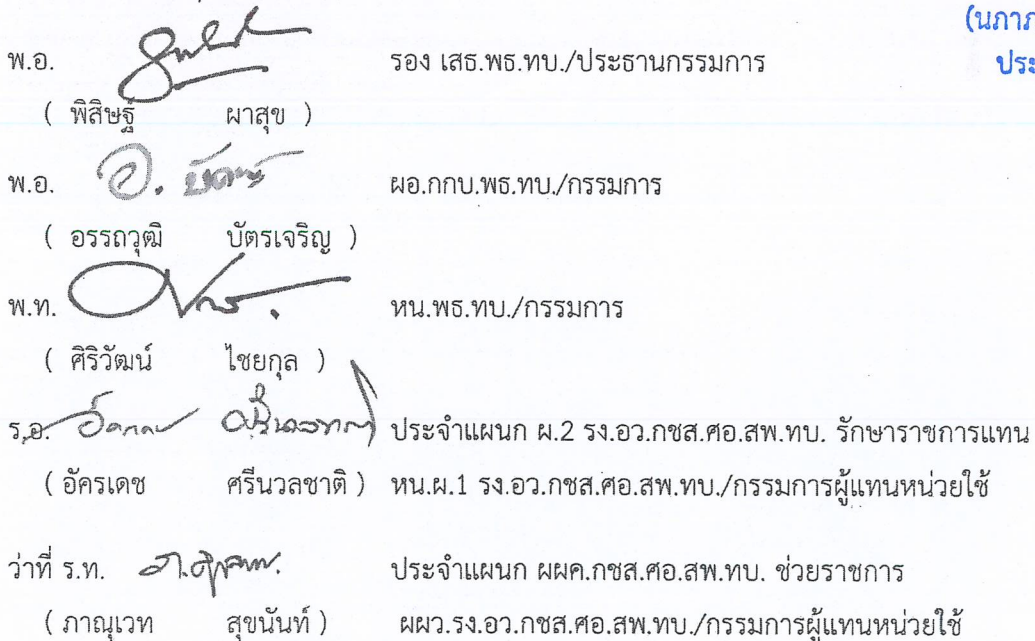 (นภาภ
ประ
พ.อ. รอง เสธ.พธ.ทบ./ประธานกรรมการ
( พิสิษฐ์ ผาสุข )
พ.อ. ผอ.กกบ.พธ.ทบ./กรรมการ
( อรรถวุฒิ บัตรเจริญ )
พ.ท. หน.พธ.ทบ./กรรมการ
( ศิริวัฒน์ ไชยกุล )
ร.อ. ประจำแผนก ผ.2 รง.อว.กชส.ศอ.สพ.ทบ. รักษาราชการแทน
( อัครเดช ศรีนวลชาติ ) หน.ผ.1 รง.อว.กชส.ศอ.สพ.ทบ./กรรมการผู้แทนหน่วยใช้
ว่าที่ ร.ท. ประจำแผนก ผผค.กชส.ศอ.สพ.ทบ. ช่วยราชการ
( ภาณุเวท สุขนันท์ ) ผผว.รง.อว.กชส.ศอ.สพ.ทบ./กรรมการผู้แทนหน่วยใช้